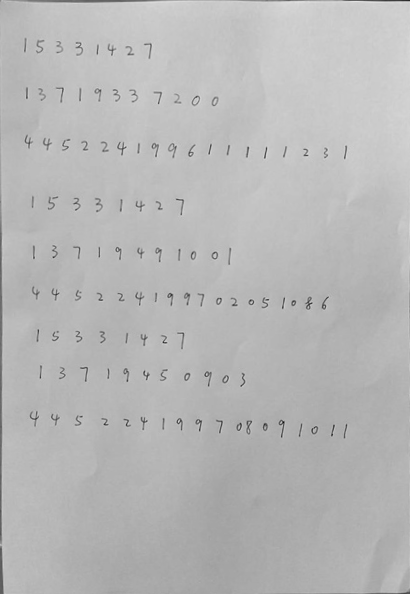 15331427
13719337200
445224199611111231
15331427
13719491001
445224199702051086
15331427
13719450903
445224199708091011